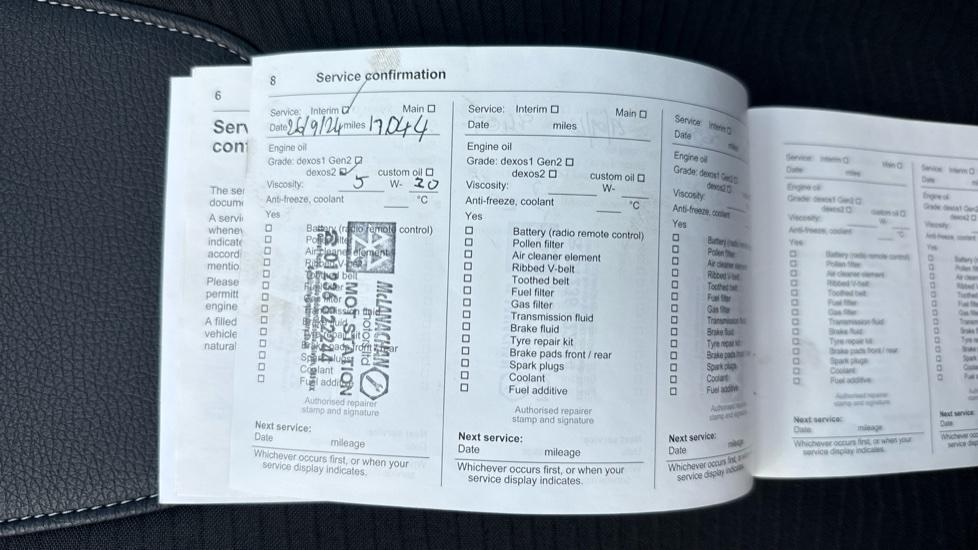 6
Ser
con
The ser
docum
A servi
wheney
indicate
accordi
mentio
Please
permitt
engine
A filled
vehicle
natural
8 Service confirmation
Service: Interim Main
Date 26/9/24 miles 17044
Engine oil
Grade: dexos1 Gen2
dexos2 custom oil
Viscosity: 5 W- 20
Anti-freeze, coolant °C
Yes
Battery (radio remote control)
Air cleaner element
Ribbed V-belt
Coolant
McLANACHAN
MOT STATION
01236 822244
Authorised repairer
stamp and signature
Next service:
Date mileage
Whichever occurs first, or when your
service display indicates.
Service: Interim Main
Date miles
Engine oil
Grade: dexos1 Gen2
dexos2 custom oil
Viscosity: W-
Anti-freeze, coolant °C
Yes
Battery (radio remote control)
Pollen filter
Air cleaner element
Ribbed V-belt
Toothed belt
Fuel filter
Gas filter
Transmission fluid
Brake fluid
Tyre repair kit
Brake pads front / rear
Spark plugs
Coolant
Fuel additive
Authorised repairer
stamp and signature
Next service:
Date mileage
Whichever occurs first, or when your
service display indicates.
Service: Interim
Date miles
Engine oil
Grade: dexos1 Gen2
dexos2
Viscosity:
Anti-freeze, coolant
Yes
Battery (radio
Pollen filter
Air cleaner
Ribbed V-belt
Toothed belt
Fuel filter
Gas filter
Transmission
Brake fluid
Tyre repair kit
Brake pads
Spark plugs
Coolant
Fuel additive
Authorised
stamp and
Next service:
Date mileage
Whichever occurs first,
service display indicates.
Service: Interim Main
Date miles
Engine oil
Grade: dexos1 Gen2
dexos2 custom oil
Viscosity: W-
Anti-freeze, coolant °C
Yes
Battery (radio remote control)
Pollen filter
Air cleaner element
Ribbed V-belt
Toothed belt
Fuel filter
Gas filter
Transmission fluid
Brake fluid
Tyre repair kit
Brake pads front / rear
Spark plugs
Coolant
Fuel additive
Authorised repairer
stamp and signature
Next service:
Date mileage
Whichever occurs first, or when your
service display indicates.
Service: Interim
Date
Engine oil
Grade: dexos1 Gen2
Viscosity:
Yes
Next service:
Date